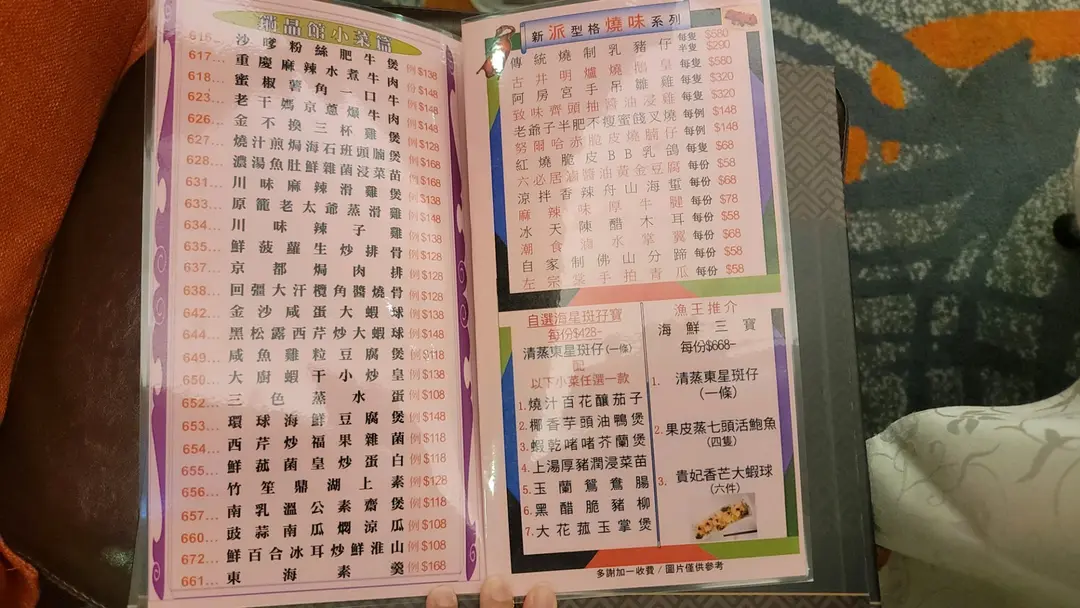 鑽品館小菜篇
616... 沙嗲粉絲肥牛煲 例$138
617... 重慶麻辣水煮牛肉 例$148
618... 蜜椒薯角一口牛 例$148
623... 老干媽京蔥爆牛肉 例$148
626... 金不換三杯雞煲 例$128
627... 燒汁煎焗海石班頭腩煲 例$168
628... 濃湯魚肚鮮雜菌浸菜苗 例$168
631... 川味麻辣滑雞煲 例$138
633... 原籠老太爺蒸滑雞 例$148
634... 川味辣子雞 例$138
635... 鮮菠蘿生炒排骨 例$128
637... 京都焗肉排 例$128
638... 回彊大汗欖角醬燒骨 例$128
642... 金沙咸蛋大蝦球 例$138
644... 黑松露西芹炒大蝦球 例$148
649... 咸魚雞粒豆腐煲 例$118
650... 大廚蝦干小炒皇 例$138
652... 三色蒸水蛋 例$108
653... 環球海鮮豆腐煲 例$148
654... 西芹炒福果雜菌 例$118
655... 鮮菰菌皇炒蛋白 例$118
656... 竹笙鼎湖上素 例$128
657... 南乳溫公素齋煲 例$118
660... 豉蒜南瓜燜涼瓜 例$108
672... 鮮百合冰耳炒鮮淮山 例$108
661... 東海素羹 例$168
新派型格燒味系列
傳統燒制乳豬仔 每隻 $580 半隻 $290
古井明爐燒鵝皇 每隻 $580
阿房宮手吊雛雞 每隻 $320
致味齊頭抽醬油浸雞 每隻 $320
老爺子半肥不瘦蜜餞叉燒 每例 $148
努爾哈赤脆皮燒腩仔 每例 $148
紅燒脆皮BB乳鴿 每隻 $68
六必居滷醬油黃金豆腐 每份 $58
涼拌香辣舟山海蜇 每份 $68
麻辣味厚牛腱 每份 $78
冰天陳醋木耳 每份 $58
潮食滷水掌翼 每份 $68
自家制佛山分蹄 每份 $58
左宗棠手拍青瓜 每份 $58
自選海星斑孖寶
每份$428-
清蒸東星斑仔(一條)
配
以下小菜任選一款
1.燒汁百花釀茄子
2.椰香芋頭油鴨煲
3.蝦乾啫啫芥蘭煲
4.上湯厚豬潤浸菜苗
5.玉蘭鴛鴦腸
6.黑醋脆豬柳
7.大花菰玉掌煲
漁王推介
海鮮三寶
每份$668-
1. 清蒸東星斑仔
(一條)
2.果皮蒸七頭活鮑魚
(四隻)
3. 貴妃香芒大蝦球
(六件)
多謝加一收費 / 圖片僅供參考